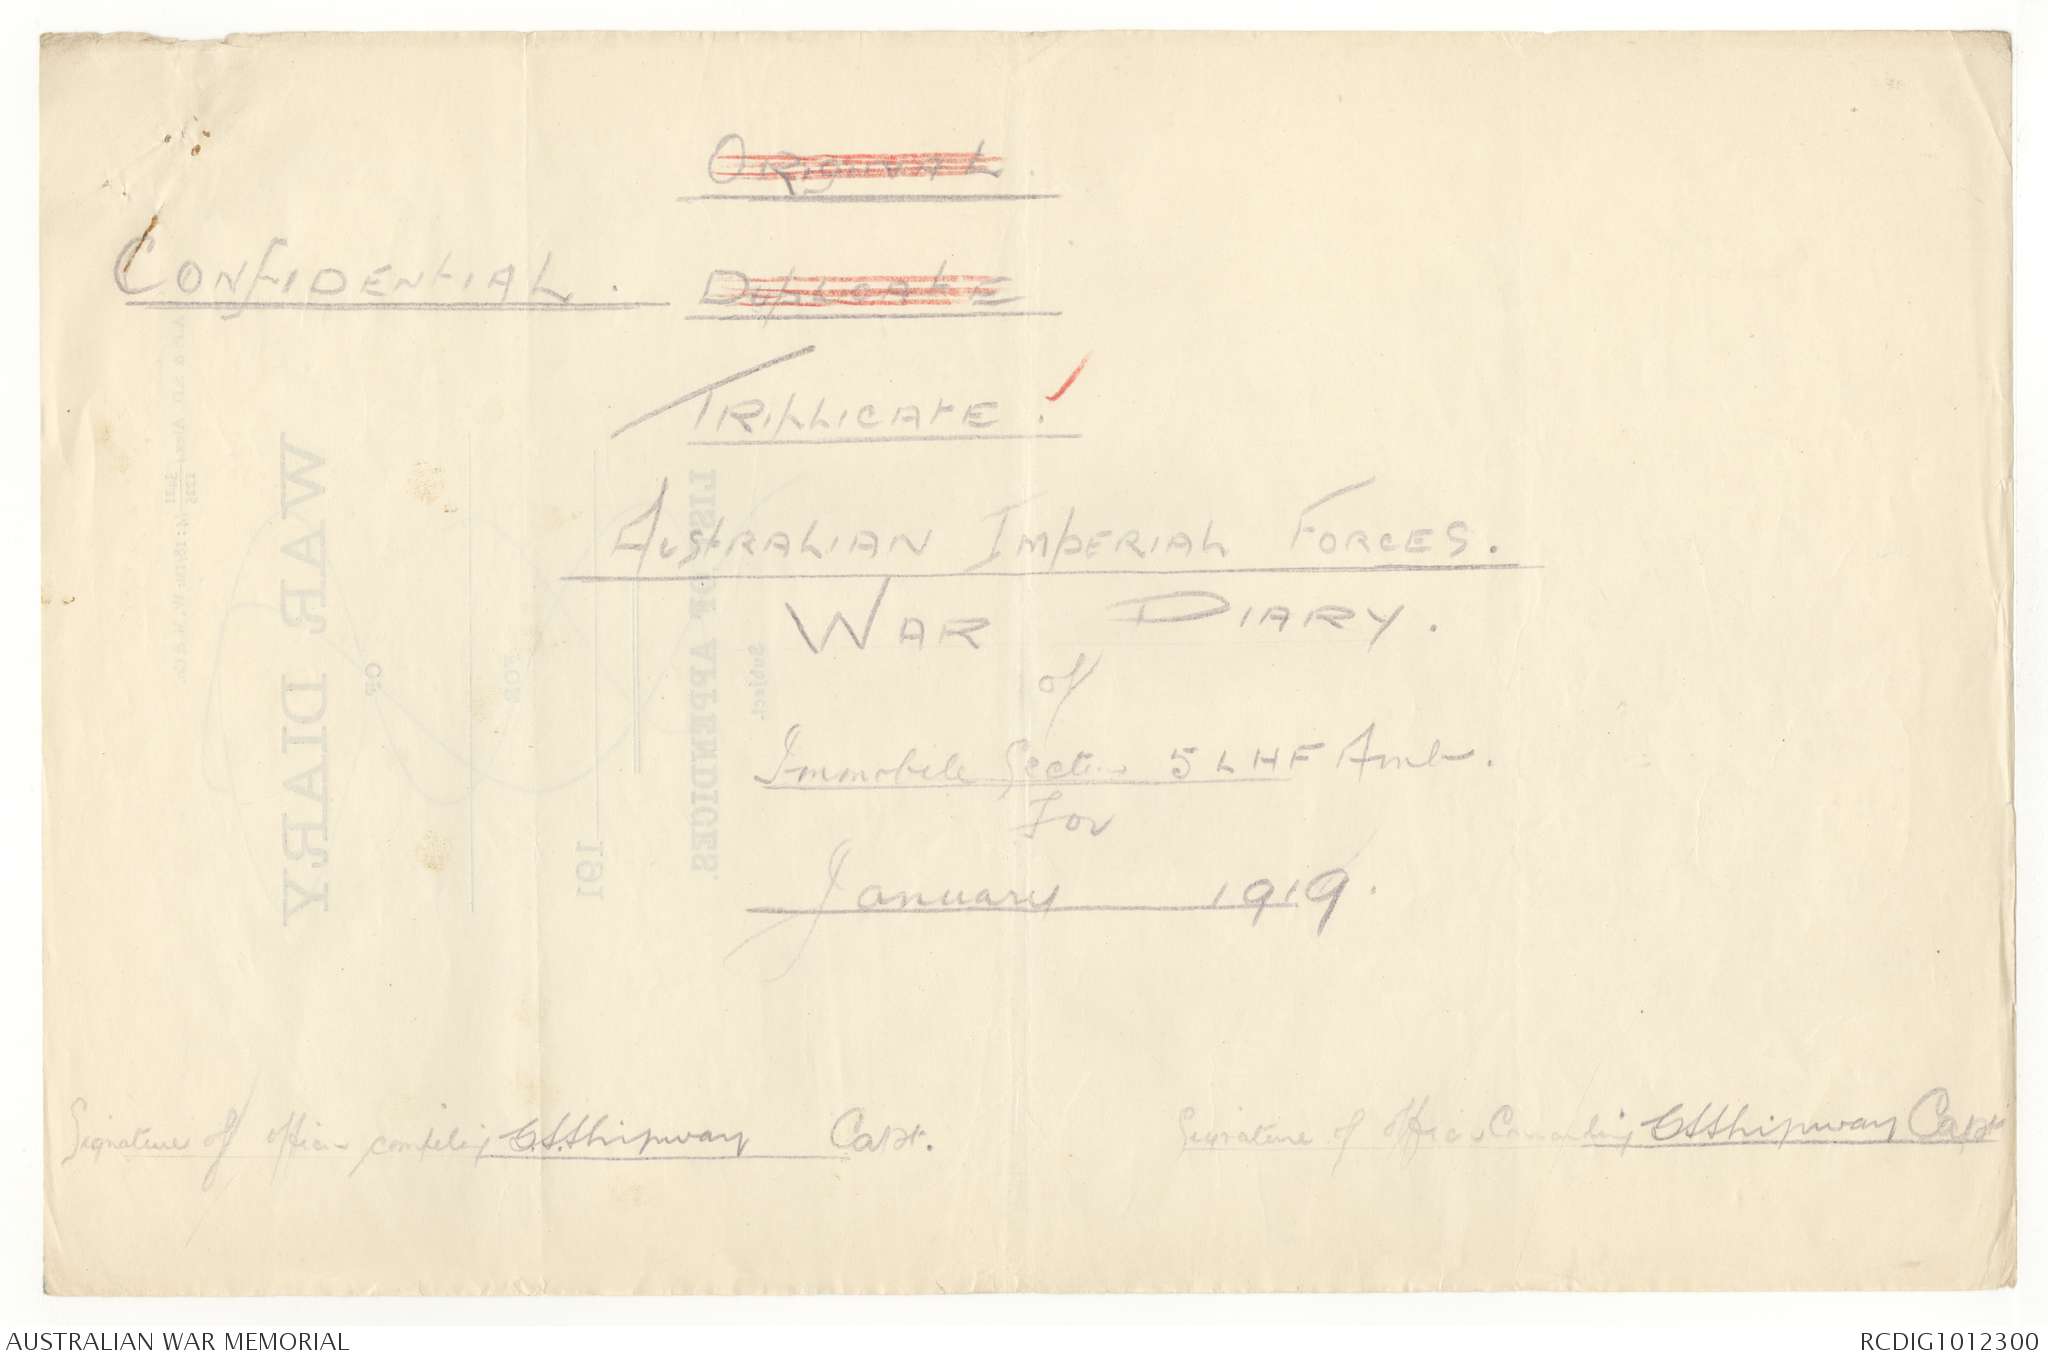 ORIGINAL.
CONFIDENTIAL. DUPLICATE
TRIPLICATE.
AUSTRALIAN IMPERIAL FORCES.
WAR DIARY.
of
Immobile Section 5 LHF Amb.
For
January 1919.
Signature of officer compiling Shipway Capt.
Signature of officer Shipway Capt
AUSTRALIAN WAR MEMORIAL
RCDIG1012300